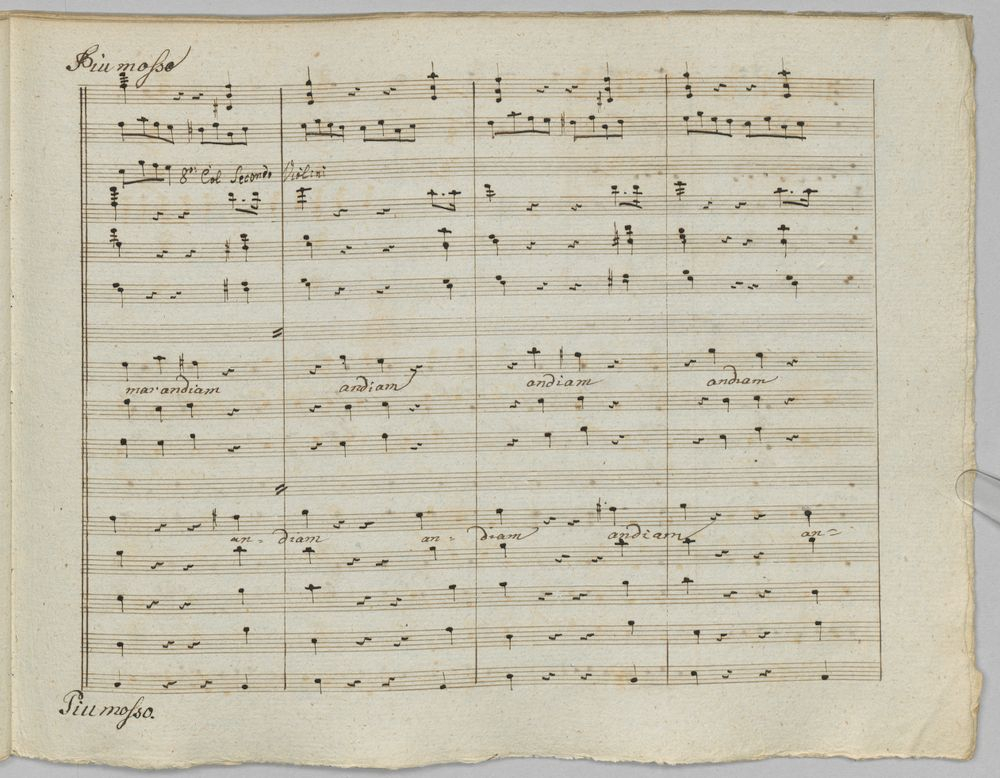 Piu mosso
8va Col Secondo Violini
mar andiam andiam andiam andiam
an- diam an- diam andiam an=
Piu mosso.